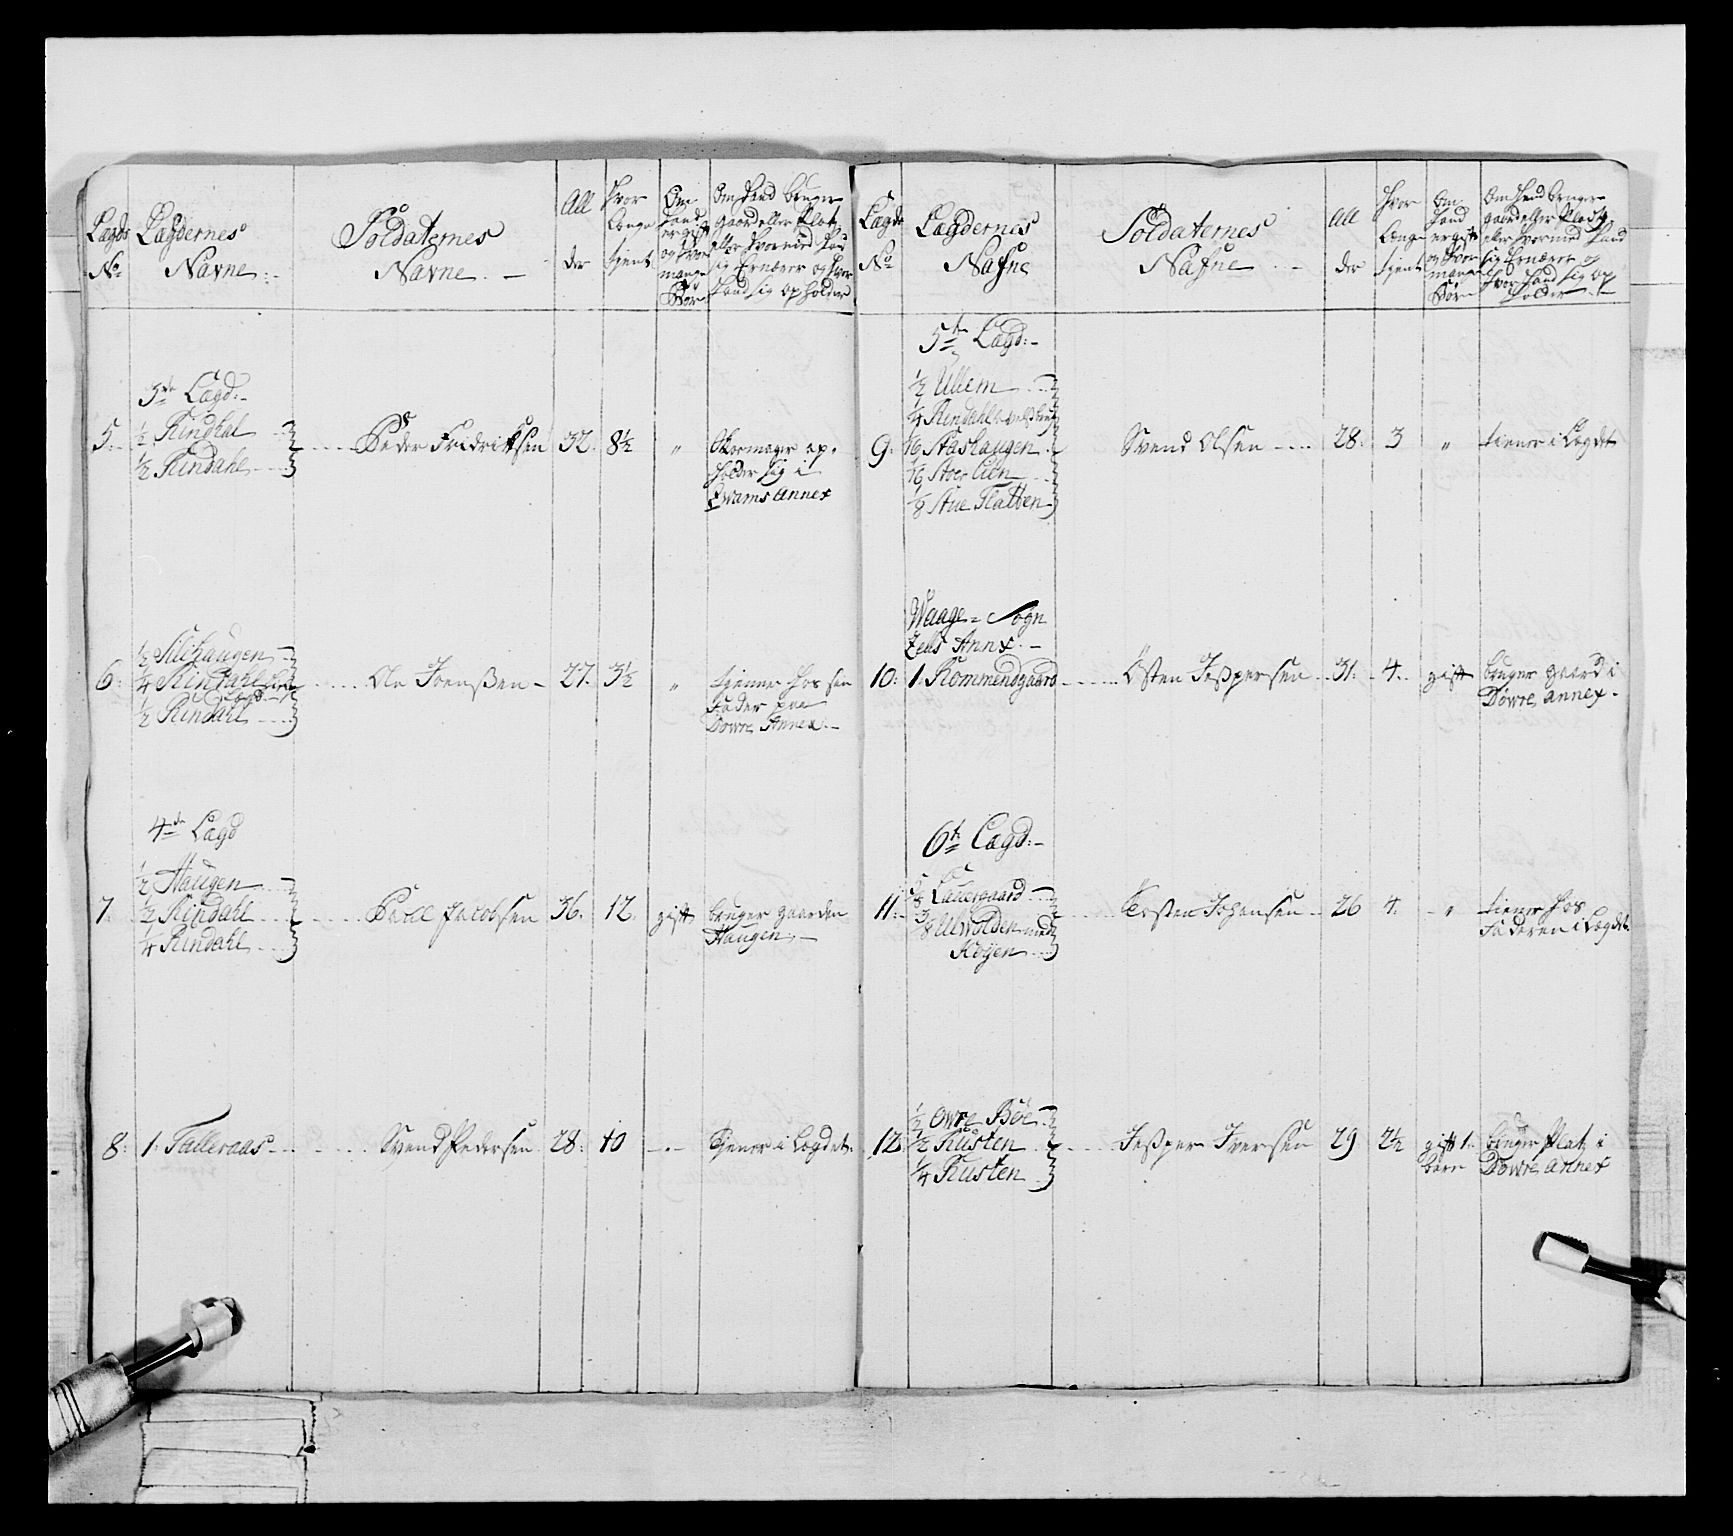 Lægds No
Lægdernes Navne
Soldaternes Navne
Allder
Hvor længe tjent
Om hand er gift og hvor mange Børn
Om hand bruger gaard eller Plat, eller hvormed hand sig Ernærer og hvor hand sig opholder
3de Lægd
5. ½ Rindhal
½ Rindahl
Peder Fridriksen 32. 8½ "
Skoemager op-
holder sig i
Qvams annex
½ Sillihaugen
6. ¼ Rindahl
Lægd
½ Rindahl
Ole Joenßen 27. 3½ "
tjenner hos sin
fader paa
Dowre Annex
4de Lægd
½ Haugen
7. ½ Rindahl
¼ Rindahl
Poell Jacobsen 36. 12. gift
bruger gaarden
Haugen
8. 1. Talleraas Svend Pedersen 28. 10 tjener i Lægdet
Lægds No
Lægdernes Nafne
Soldaternes Nafne
Allder
Hvor Længe tjent
Om Hand er gift og hvor mange Børn
Om Hand bruger gaard eller Plads eller hvormed Hand sig Ernærer og hvor Hand sig op holder
5te Lægd
½ Ullem
¼ Rindahl
9. 1/16 Stashaugen
1/16 Stoer Lien
1/8 Stue Flatten
Svend Olsen 28. 3 " tiener i Lægdet
Waage Sogn
Zells Annx
10. 1. Kommendgaard Östen Jeßpersen 31. 4. gift
bruger gaard i
Dowre annex
6te Lægd
11. 5/8 Lauergaard
3/8 Ulwolden med
Höyen
Tosten Johansen 26 4. "
tiener hos
Faderen i Lægdet
½ Owre Böe
12. ½ Kusten
¼ Kusten
Jeßper Iversen 29 2½ gift 1.
barn
bruger Plat i
Dowre annex